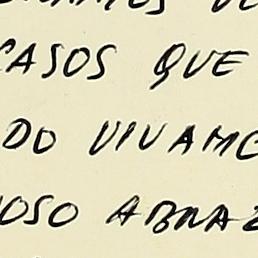 CASOS QUE
DO VIVAME
OSO ABRAZ